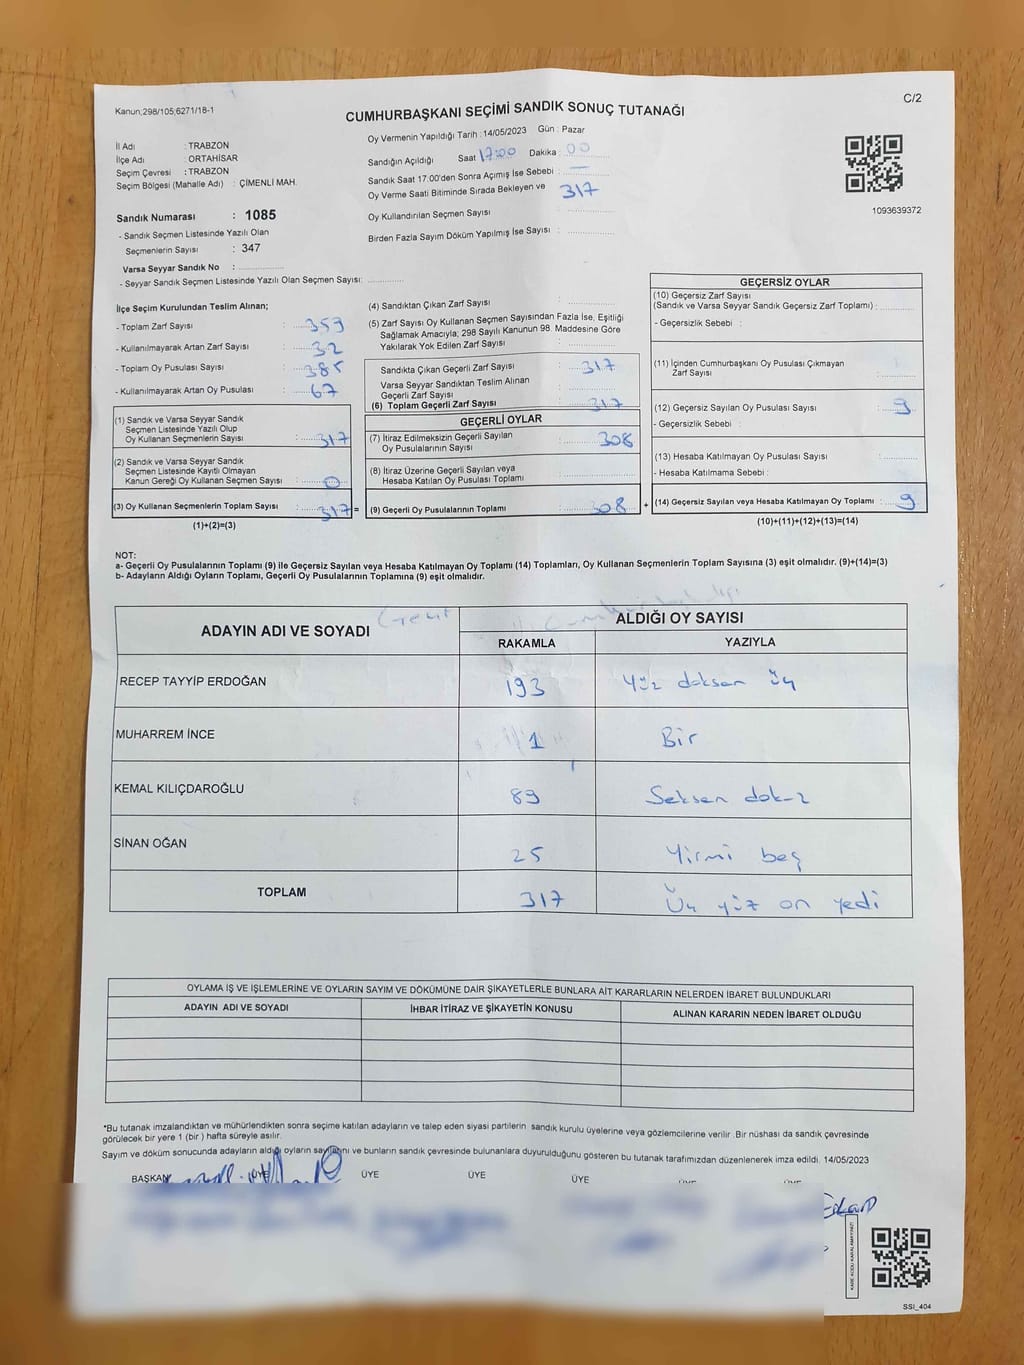 Kanun;298/105;6271/18-1
C/2
CUMHURBAŞKANI SEÇİMİ SANDIK SONUÇ TUTANAĞI
İl Adı : TRABZON
İlçe Adı : ORTAHİSAR
Seçim Çevresi : TRABZON
Seçim Bölgesi (Mahalle Adı) : ÇİMENLİ MAH.
Sandık Numarası : 1085
- Sandık Seçmen Listesinde Yazılı Olan
Seçmenlerin Sayısı : 347
Varsa Seyyar Sandık No :
- Seyyar Sandık Seçmen Listesinde Yazılı Olan Seçmen Sayısı:
Oy Vermenin Yapıldığı Tarih : 14/05/2023 Gün : Pazar
Sandığın Açıldığı Saat 17:00 Dakika : 00
Sandık Saat 17.00'den Sonra Açımış İse Sebebi : —
Oy Verme Saati Bitiminde Sırada Bekleyen ve 317
Oy Kullandırılan Seçmen Sayısı :
Birden Fazla Sayım Döküm Yapılmış İse Sayısı :
1093639372
İlçe Seçim Kurulundan Teslim Alınan;
- Toplam Zarf Sayısı : 353
- Kullanılmayarak Artan Zarf Sayısı : 32
- Toplam Oy Pusulası Sayısı : 385
- Kullanılmayarak Artan Oy Pusulası : 67
(1) Sandık ve Varsa Seyyar Sandık
Seçmen Listesinde Yazılı Olup
Oy Kullanan Seçmenlerin Sayısı : 317
(2) Sandık ve Varsa Seyyar Sandık
Seçmen Listesinde Kayıtlı Olmayan
Kanun Gereği Oy Kullanan Seçmen Sayısı : 0
(3) Oy Kullanan Seçmenlerin Toplam Sayısı : 317 =
(1)+(2)=(3)
(4) Sandıktan Çıkan Zarf Sayısı :
(5) Zarf Sayısı Oy Kullanan Seçmen Sayısından Fazla İse, Eşitliği
Sağlamak Amacıyla; 298 Sayılı Kanunun 98. Maddesine Göre
Yakılarak Yok Edilen Zarf Sayısı :
Sandıkta Çıkan Geçerli Zarf Sayısı : 317
Varsa Seyyar Sandıktan Teslim Alınan
Geçerli Zarf Sayısı :
(6) Toplam Geçerli Zarf Sayısı : 317
GEÇERLİ OYLAR
(7) İtiraz Edilmeksizin Geçerli Sayılan
Oy Pusulalarının Sayısı : 308
(8) İtiraz Üzerine Geçerli Sayılan veya
Hesaba Katılan Oy Pusulası Toplamı :
(9) Geçerli Oy Pusulalarının Toplamı : 308 +
GEÇERSİZ OYLAR
(10) Geçersiz Zarf Sayısı
(Sandık ve Varsa Seyyar Sandık Geçersiz Zarf Toplamı) :
- Geçersizlik Sebebi :
(11) İçinden Cumhurbaşkanı Oy Pusulası Çıkmayan
Zarf Sayısı :
(12) Geçersiz Sayılan Oy Pusulası Sayısı : 9
- Geçersizlik Sebebi :
(13) Hesaba Katılmayan Oy Pusulası Sayısı :
- Hesaba Katılmama Sebebi :
(14) Geçersiz Sayılan veya Hesaba Katılmayan Oy Toplamı : 9
(10)+(11)+(12)+(13)=(14)
NOT:
a- Geçerli Oy Pusulalarının Toplamı (9) ile Geçersiz Sayılan veya Hesaba Katılmayan Oy Toplamı (14) Toplamları, Oy Kullanan Seçmenlerin Toplam Sayısına (3) eşit olmalıdır. (9)+(14)=(3)
b- Adayların Aldığı Oyların Toplamı, Geçerli Oy Pusulalarının Toplamına (9) eşit olmalıdır.
ADAYIN ADI VE SOYADI
ALDIĞI OY SAYISI
RAKAMLA YAZIYLA
RECEP TAYYİP ERDOĞAN 193 Yüz doksan üç
MUHARREM İNCE 1 Bir
KEMAL KILIÇDAROĞLU 89 Seksen dokuz
SİNAN OĞAN 25 Yirmi beş
TOPLAM 317 Üç yüz on yedi
OYLAMA İŞ VE İŞLEMLERİNE VE OYLARIN SAYIM VE DÖKÜMÜNE DAİR ŞİKAYETLERLE BUNLARA AİT KARARLARIN NELERDEN İBARET BULUNDUKLARI
ADAYIN ADI VE SOYADI İHBAR İTİRAZ VE ŞİKAYETİN KONUSU ALINAN KARARIN NEDEN İBARET OLDUĞU
*Bu tutanak imzalandıktan ve mühürlendikten sonra seçime katılan adayların ve talep eden siyasi partilerin sandık kurulu üyelerine veya gözlemcilerine verilir .Bir nüshası da sandık çevresinde
görülecek bir yere 1 (bir ) hafta süreyle asılır.
Sayım ve döküm sonucunda adayların aldığı oyların sayılarını ve bunların sandık çevresinde bulunanlara duyurulduğunu gösteren bu tutanak tarafımızdan düzenlenerek imza edildi. 14/05/2023
BAŞKAN ÜYE ÜYE ÜYE ÜYE
SSI_404